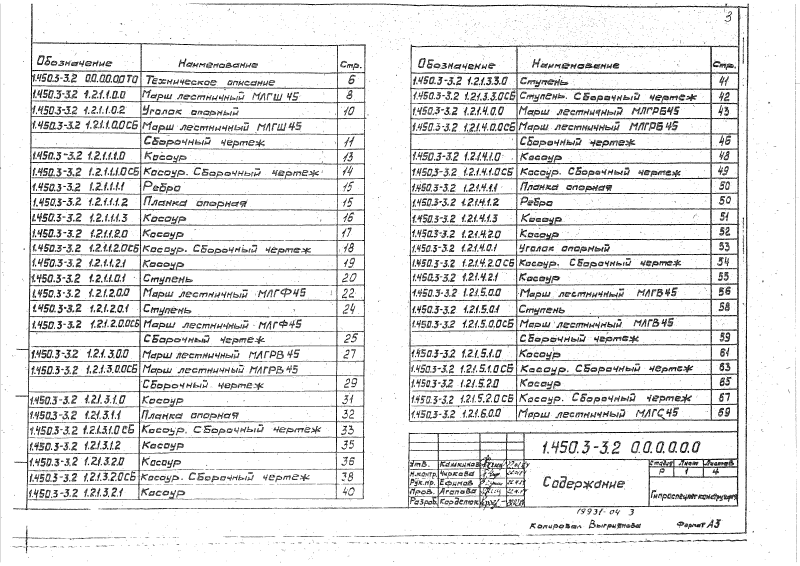 3
Обозначение Наименование Стр.
1.450.3-3.2 0.0.0.0.0 ТО Техническое описание 6
1.450.3-3.2 1.2.1.1.0.0 Марш лестничный МЛГШ 45 8
1.450.3-3.2 1.2.1.1.0.2 Уголок опорный 10
1.450.3-3.2 1.2.1.1.0.0СБ Марш лестничный МЛГШ 45
Сборочный чертеж 11
1.450.3-3.2 1.2.1.1.1.0 Косоур 13
1.450.3-3.2 1.2.1.1.1.0СБ Косоур. Сборочный чертеж 14
1.450.3-3.2 1.2.1.1.1.1 Ребро 15
1.450.3-3.2 1.2.1.1.1.2 Планка опорная 15
1.450.3-3.2 1.2.1.1.1.3 Косоур 16
1.450.3-3.2 1.2.1.1.2.0 Косоур 17
1.450.3-3.2 1.2.1.1.2.0СБ Косоур. Сборочный чертеж 18
1.450.3-3.2 1.2.1.1.2.1 Косоур 19
1.450.3-3.2 1.2.1.1.0.1 Ступень 20
1.450.3-3.2 1.2.1.2.0.0 Марш лестничный МЛГФ45 22
1.450.3-3.2 1.2.1.2.0.1 Ступень 24
1.450.3-3.2 1.2.1.2.0.0СБ Марш лестничный МЛГФ45
Сборочный чертеж 25
1.450.3-3.2 1.2.1.3.0.0 Марш лестничный МЛГРВ 45 27
1.450.3-3.2 1.2.1.3.0.0СБ Марш лестничный МЛГРВ 45
Сборочный чертеж 29
1.450.3-3.2 1.2.1.3.1.0 Косоур 31
1.450.3-3.2 1.2.1.3.1.1 Планка опорная 32
1.450.3-3.2 1.2.1.3.1.0 СБ Косоур. Сборочный чертеж 33
1.450.3-3.2 1.2.1.3.1.2 Косоур 35
1.450.3-3.2 1.2.1.3.2.0 Косоур 36
1.450.3-3.2 1.2.1.3.2.0СБ Косоур. Сборочный чертеж 38
1.450.3-3.2 1.2.1.3.2.1 Косоур 40
Обозначение Наименование Стр.
1.450.3-3.2 1.2.1.3.3.0 Ступень 41
1.450.3-3.2 1.2.1.3.3.0СБ Ступень. Сборочный чертеж 42
1.450.3-3.2 1.2.1.4.0.0 Марш лестничный МЛГРБ45 43
1.450.3-3.2 1.2.1.4.0.0СБ Марш лестничный МЛГРБ 45
Сборочный чертеж 46
1.450.3-3.2 1.2.1.4.1.0 Косоур 48
1.450.3-3.2 1.2.1.4.1.0СБ Косоур. Сборочный чертеж 49
1.450.3-3.2 1.2.1.4.1.1 Планка опорная 50
1.450.3-3.2 1.2.1.4.1.2 Ребро 50
1.450.3-3.2 1.2.1.4.1.3 Косоур 51
1.450.3-3.2 1.2.1.4.2.0 Косоур 52
1.450.3-3.2 1.2.1.4.0.1 Уголок опорный 53
1.450.3-3.2 1.2.1.4.2.0 СБ Косоур. Сборочный чертеж 54
1.450.3-3.2 1.2.1.4.2.1 Косоур 55
1.450.3-3.2 1.2.1.5.0.0 Марш лестничный МЛГВ45 56
1.450.3-3.2 1.2.1.5.0.1 Ступень 58
1.450.3-3.2 1.2.1.5.0.0СБ Марш лестничный МЛГВ45
Сборочный чертеж 59
1.450.3-3.2 1.2.1.5.1.0 Косоур 61
1.450.3-3.2 1.2.1.5.1.0 СБ Косоур. Сборочный чертеж 63
1.450.3-3.2 1.2.1.5.2.0 Косоур 65
1.450.3-3.2 1.2.1.5.2.0 СБ Косоур. Сборочный чертеж 67
1.450.3-3.2 1.2.1.6.0.0 Марш лестничный МЛГС45 69
1.450.3-3.2 0.0.0.0.0.0
Утв.
Н.контр. Чиркова
Рук.пр. Ефимов
Пров. Агапова
Разраб. Корделюк
Содержание
Стадия Лист Листов
Р 1 4
Гипроспецлегконструкция
19931-04 3
Копировал Формат А3